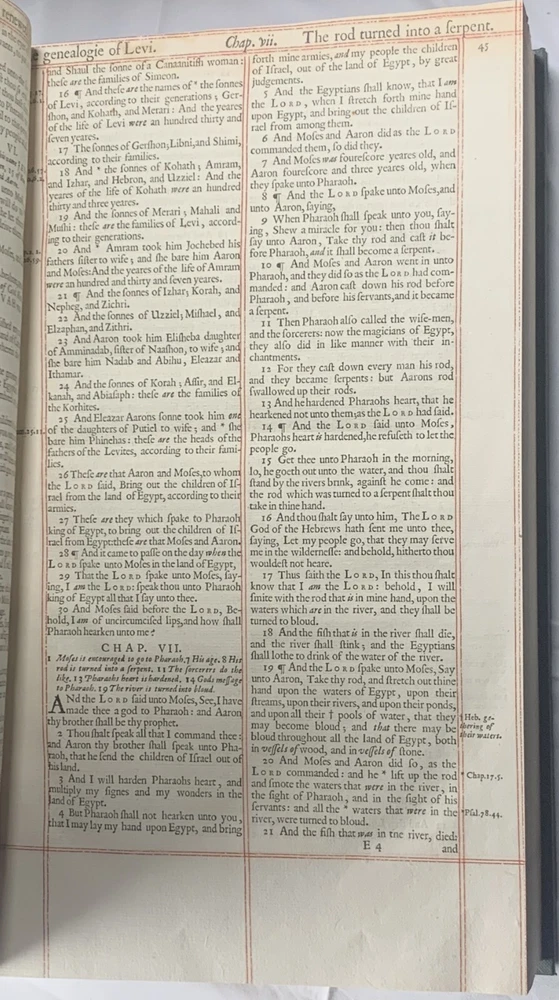 genealogie of Levi.
Chap. vii.
The rod turned into a ſerpent.
45
and Shaul the ſonne of a Canaanitiſh woman:
theſe are the families of Simeon.
16 ¶ And theſe are the names of * the ſonnes
of Levi, according to their generations; Ger-
ſhon, and Kohath, and Merari: And the yeares
of the life of Levi were an hundred thirty and
ſeven yeares.
17 The ſonnes of Gerſhon; Libni, and Shimi,
according to their families.
18 And * the ſonnes of Kohath; Amram,
and Izhar, and Hebron, and Uzziel: And the
yeares of the life of Kohath were an hundred
thirty and three yeares.
19 And the ſonnes of Merari; Mahali and
Muſhi: theſe are the families of Levi, accord-
ing to their generations.
20 And * Amram took him Jochebed his
fathers ſiſter to wife; and ſhe bare him Aaron
and Moſes: And the yeares of the life of Amram
were an hundred and thirty and ſeven yeares.
21 ¶ And the ſonnes of Izhar; Korah, and
Nepheg, and Zichri.
22 And the ſonnes of Uzziel; Miſhael, and
Elzaphan, and Zithri.
23 And Aaron took him Eliſheba daughter
of Amminadab, ſiſter of Naaſhon, to wife; and
ſhe bare him Nadab and Abihu, Eleazar and
Ithamar.
24 And the ſonnes of Korah; Aſſir, and El-
kanah, and Abiaſaph: theſe are the families of
the Korhites.
25 And Eleazar Aarons ſonne took him one
of the daughters of Putiel to wife; and * ſhe
bare him Phinehas: theſe are the heads of the
fathers of the Levites, according to their fami-
lies.
26 Theſe are that Aaron and Moſes, to whom
the LORD ſaid, Bring out the children of Iſ-
rael from the land of Egypt, according to their
armies.
27 Theſe are they which ſpake to Pharaoh
king of Egypt, to bring out the children of Iſ-
rael from Egypt: theſe are that Moſes and Aaron.
28 ¶ And it came to paſſe on the day when the
LORD ſpake unto Moſes in the land of Egypt,
29 That the LORD ſpake unto Moſes, ſay-
ing, I am the LORD: ſpeak thou unto Pharaoh
king of Egypt all that I ſay unto thee.
30 And Moſes ſaid before the LORD, Be-
hold, I am of uncircumciſed lips, and how ſhall
Pharaoh hearken unto me?
CHAP. VII.
1 Moſes is encouraged to go to Pharaoh. 7 His age. 8 His
rod is turned into a ſerpent. 11 The ſorcerers do the
like. 13 Pharaohs heart is hardened. 14 Gods meſſage
to Pharaoh. 19 The river is turned into bloud.
ANd the LORD ſaid unto Moſes, See, I have
made thee a god to Pharaoh: and Aaron
thy brother ſhall be thy prophet.
2 Thou ſhalt ſpeak all that I command thee:
and Aaron thy brother ſhall ſpeak unto Pha-
raoh, that he ſend the children of Iſrael out of
his land.
3 And I will harden Pharaohs heart, and
multiply my ſignes and my wonders in the
land of Egypt.
4 But Pharaoh ſhall not hearken unto you,
that I may lay my hand upon Egypt, and bring
forth mine armies, and my people the children
of Iſrael, out of the land of Egypt, by great
judgements.
5 And the Egyptians ſhall know, that I am
the LORD, when I ſtretch forth mine hand
upon Egypt, and bring out the children of Iſ-
rael from among them.
6 And Moſes and Aaron did as the LORD
commanded them, ſo did they.
7 And Moſes was foureſcore yeares old, and
Aaron foureſcore and three yeares old, when
they ſpake unto Pharaoh.
8 ¶ And the LORD ſpake unto Moſes, and
unto Aaron, ſaying,
9 When Pharaoh ſhall ſpeak unto you, ſay-
ing, Shew a miracle for you: then thou ſhalt
ſay unto Aaron, Take thy rod and caſt it be-
fore Pharaoh, and it ſhall become a ſerpent.
10 ¶ And Moſes and Aaron went in unto
Pharaoh, and they did ſo as the LORD had com-
manded: and Aaron caſt down his rod before
Pharaoh, and before his ſervants, and it became
a ſerpent.
11 Then Pharaoh alſo called the wiſe-men,
and the ſorcerers: now the magicians of Egypt,
they alſo did in like manner with their in-
chantments.
12 For they caſt down every man his rod,
and they became ſerpents: but Aarons rod
ſwallowed up their rods.
13 And he hardened Pharaohs heart, that he
hearkened not unto them; as the LORD had ſaid.
14 ¶ And the LORD ſaid unto Moſes,
Pharaohs heart is hardened, he refuſeth to let the
people go.
15 Get thee unto Pharaoh in the morning,
lo, he goeth out unto the water, and thou ſhalt
ſtand by the rivers brink, againſt he come: and
the rod which was turned to a ſerpent ſhalt thou
take in thine hand.
16 And thou ſhalt ſay unto him, The LORD
God of the Hebrews hath ſent me unto thee,
ſaying, Let my people go, that they may ſerve
me in the wilderneſſe: and behold, hitherto thou
wouldeſt not heare.
17 Thus ſaith the LORD, In this thou ſhalt
know that I am the LORD: behold, I will
ſmite with the rod that is in mine hand, upon the
waters which are in the river, and they ſhall be
turned to bloud.
18 And the fiſh that is in the river ſhall die,
and the river ſhall ſtink; and the Egyptians
ſhall lothe to drink of the water of the river.
19 ¶ And the LORD ſpake unto Moſes, Say
unto Aaron, Take thy rod, and ſtretch out thine
hand upon the waters of Egypt, upon their
ſtreams, upon their rivers, and upon their ponds,
and upon all their † pools of water, that they
may become bloud; and that there may be
bloud throughout all the land of Egypt, both
in veſſels of wood, and in veſſels of ſtone.
20 And Moſes and Aaron did ſo, as the
LORD commanded: and he * lift up the rod
and ſmote the waters that were in the river, in
the ſight of Pharaoh, and in the ſight of his
ſervants: and all the * waters that were in the
river, were turned to bloud.
21 And the fiſh that was in the river, died:
E 4
and
† Heb. ga-
thering of
their waters.
* Chap. 17. 5.
* Pſal. 78. 44.